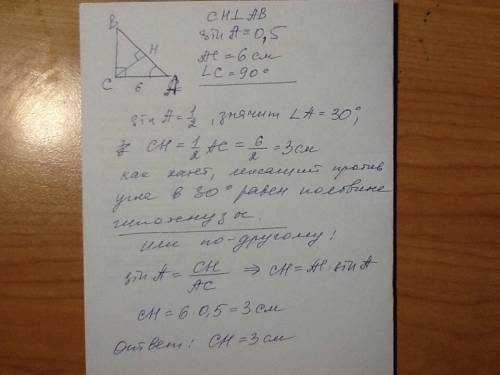 B
H
C
6
A
CH⊥AB
sin A=0,5
AC=6см
∠C=90°
sin A=1/2, значит ∠A=30°,
CH=1/2 AC=6/2=3см
как катет, лежащий против
угла в 30° равен половине
гипотенузы.
или по-другому:
sin A=CH/AC ⇒ CH=AC·sin A
CH=6·0,5=3см
Ответ: CH=3см